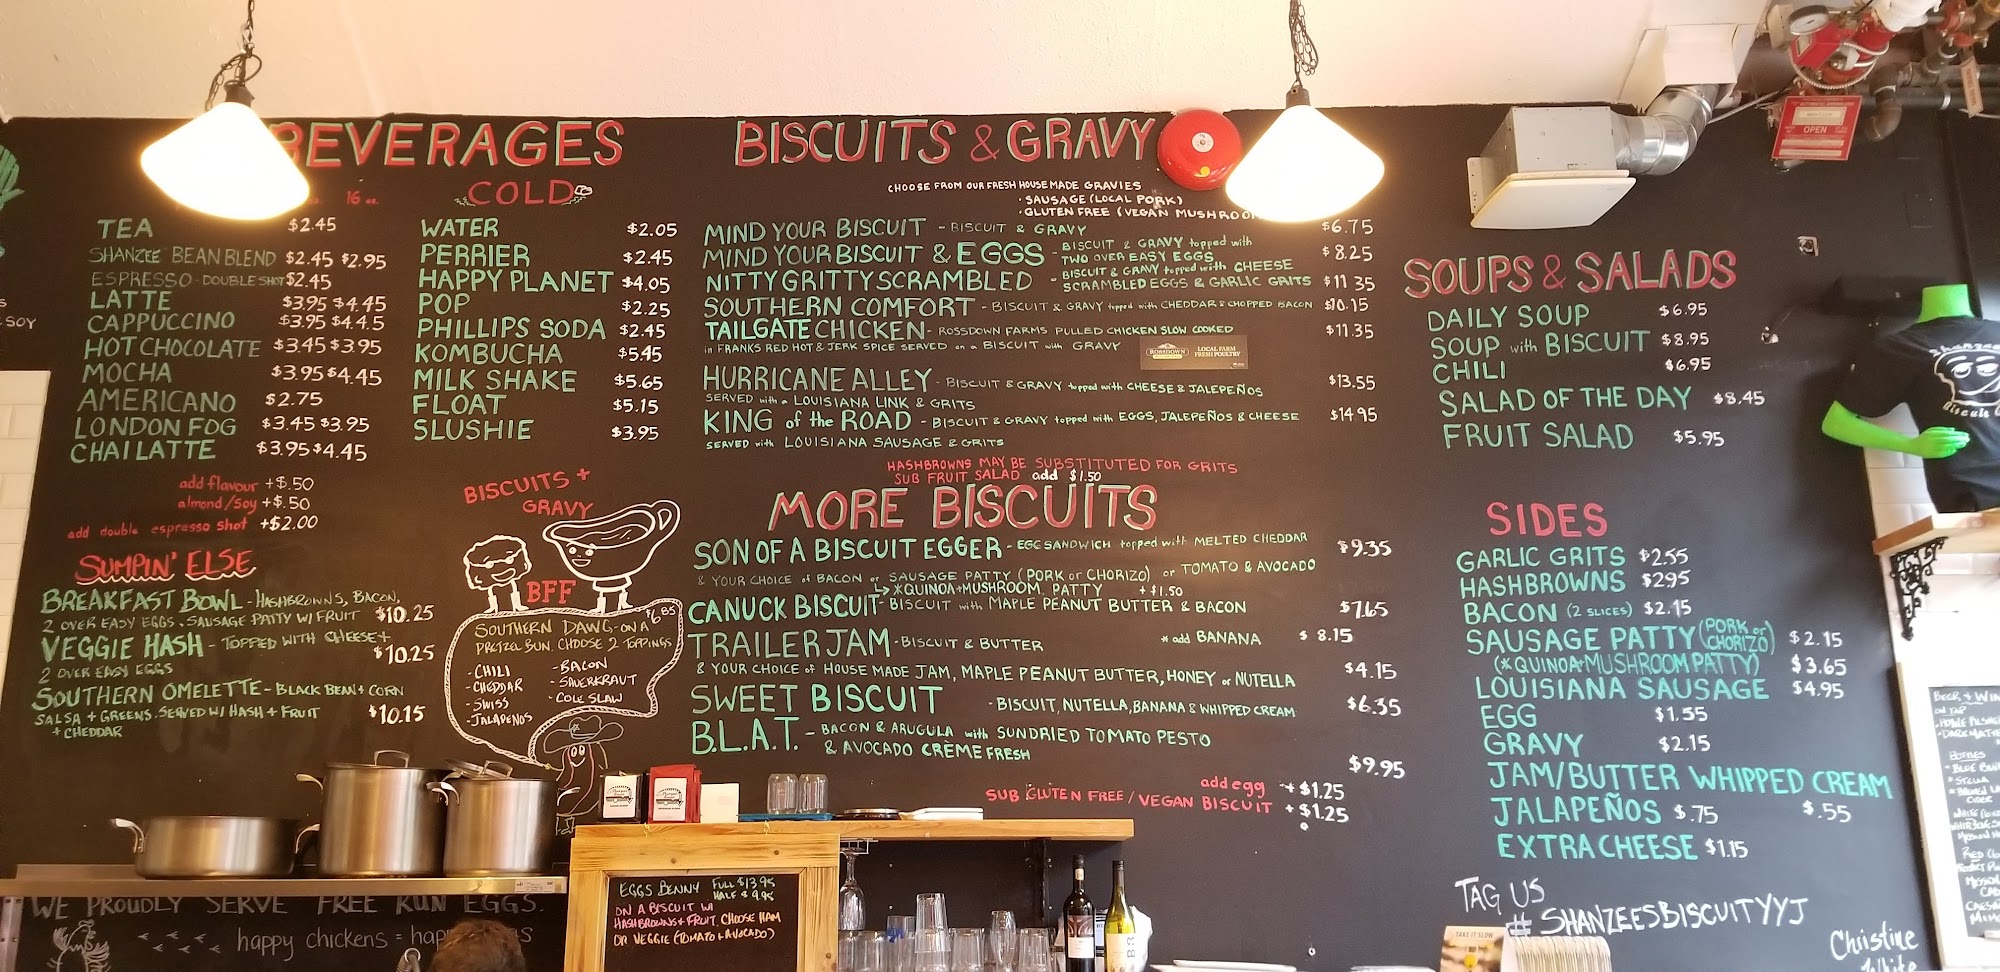 BEVERAGES
16 oz.
TEA $2.45
SHANZEE BEAN BLEND $2.45 $2.95
ESPRESSO - DOUBLE SHOT $2.45
LATTE $3.95 $4.45
CAPPUCCINO $3.95 $4.45
HOT CHOCOLATE $3.45 $3.95
MOCHA $3.95 $4.45
AMERICANO $2.75
LONDON FOG $3.45 $3.95
CHAI LATTE $3.95 $4.45
add flavour +$.50
almond/soy +$.50
add double espresso shot +$2.00
COLD
WATER $2.05
PERRIER $2.45
HAPPY PLANET $4.05
POP $2.25
PHILLIPS SODA $2.45
KOMBUCHA $5.45
MILK SHAKE $5.65
FLOAT $5.15
SLUSHIE $3.95
SUMPIN' ELSE
BREAKFAST BOWL - HASHBROWNS, BACON,
2 OVER EASY EGGS. SAUSAGE PATTY W/ FRUIT $10.25
VEGGIE HASH - TOPPED WITH CHEESE +
2 OVER EASY EGGS $10.25
SOUTHERN OMELETTE - BLACK BEAN + CORN
SALSA + GREENS. SERVED W/ HASH + FRUIT $10.15
+ CHEDDAR
BISCUITS +
GRAVY
BFF
$6.85
SOUTHERN DAWG - ON A
PRETZEL BUN. CHOOSE 2 TOPPINGS
- CHILI
- CHEDDAR
- SWISS
- JALAPEÑOS
- BACON
- SAUERKRAUT
- COLE SLAW
BISCUITS & GRAVY
CHOOSE FROM OUR FRESH HOUSE MADE GRAVIES
· SAUSAGE (LOCAL PORK)
· GLUTEN FREE (VEGAN MUSHROOM
MIND YOUR BISCUIT - BISCUIT & GRAVY $6.75
MIND YOUR BISCUIT & EGGS - BISCUIT & GRAVY topped with
TWO OVER EASY EGGS $8.25
NITTY GRITTY SCRAMBLED - BISCUIT & GRAVY topped with CHEESE
SCRAMBLED EGGS & GARLIC GRITS $11.35
SOUTHERN COMFORT - BISCUIT & GRAVY topped with CHEDDAR & CHOPPED BACON $10.15
TAILGATE CHICKEN - ROSSDOWN FARMS PULLED CHICKEN SLOW COOKED $11.35
in FRANKS RED HOT & JERK SPICE SERVED on a BISCUIT with GRAVY
ROSSDOWN LOCAL FARM
FRESH POULTRY
HURRICANE ALLEY - BISCUIT & GRAVY topped with CHEESE & JALEPEÑOS $13.55
SERVED with a LOUISIANA LINK & GRITS
KING of the ROAD - BISCUIT & GRAVY topped with EGGS, JALEPEÑOS & CHEESE $14.95
SERVED with LOUISIANA SAUSAGE & GRITS
HASHBROWNS MAY BE SUBSTITUTED FOR GRITS
SUB FRUIT SALAD add $1.50
MORE BISCUITS
SON OF A BISCUIT EGGER - EGG SANDWICH topped with MELTED CHEDDAR $9.35
& YOUR CHOICE of BACON or SAUSAGE PATTY (PORK or CHORIZO) or TOMATO & AVOCADO
*QUINOA + MUSHROOM PATTY + $1.50
CANUCK BISCUIT - BISCUIT with MAPLE PEANUT BUTTER & BACON $7.65
TRAILER JAM - BISCUIT & BUTTER * add BANANA $ 8.15
& YOUR CHOICE of HOUSE MADE JAM, MAPLE PEANUT BUTTER, HONEY or NUTELLA $4.15
SWEET BISCUIT - BISCUIT, NUTELLA, BANANA & WHIPPED CREAM $6.35
B.L.A.T. - BACON & ARUGULA with SUNDRIED TOMATO PESTO
& AVOCADO CRÈME FRESH $9.95
add egg + $1.25
SUB GLUTEN FREE / VEGAN BISCUIT + $1.25
SOUPS & SALADS
DAILY SOUP $6.95
SOUP with BISCUIT $8.95
CHILI $6.95
SALAD OF THE DAY $8.45
FRUIT SALAD $5.95
SIDES
GARLIC GRITS $2.55
HASHBROWNS $2.95
BACON (2 SLICES) $2.15
SAUSAGE PATTY (PORK or CHORIZO) $2.15
(*QUINOA + MUSHROOM PATTY) $3.65
LOUISIANA SAUSAGE $4.95
EGG $1.55
GRAVY $2.15
JAM/BUTTER WHIPPED CREAM
JALAPEÑOS $.75 $.55
EXTRA CHEESE $1.15
TAG US
# SHANZEESBISCUITYYJ
Christine
White
OPEN
SOY
BEER + WINE
ON TAP
BOTTLES
STELLA
CIDER
WE PROUDLY SERVE FREE RUN EGGS.
happy chickens =
EGGS BENNY FULL $13.95
HALF $ 9.95
ON A BISCUIT W/
HASHBROWNS + FRUIT. CHOOSE HAM
OR VEGGIE (TOMATO + AVOCADO)
TAKE IT SLOW